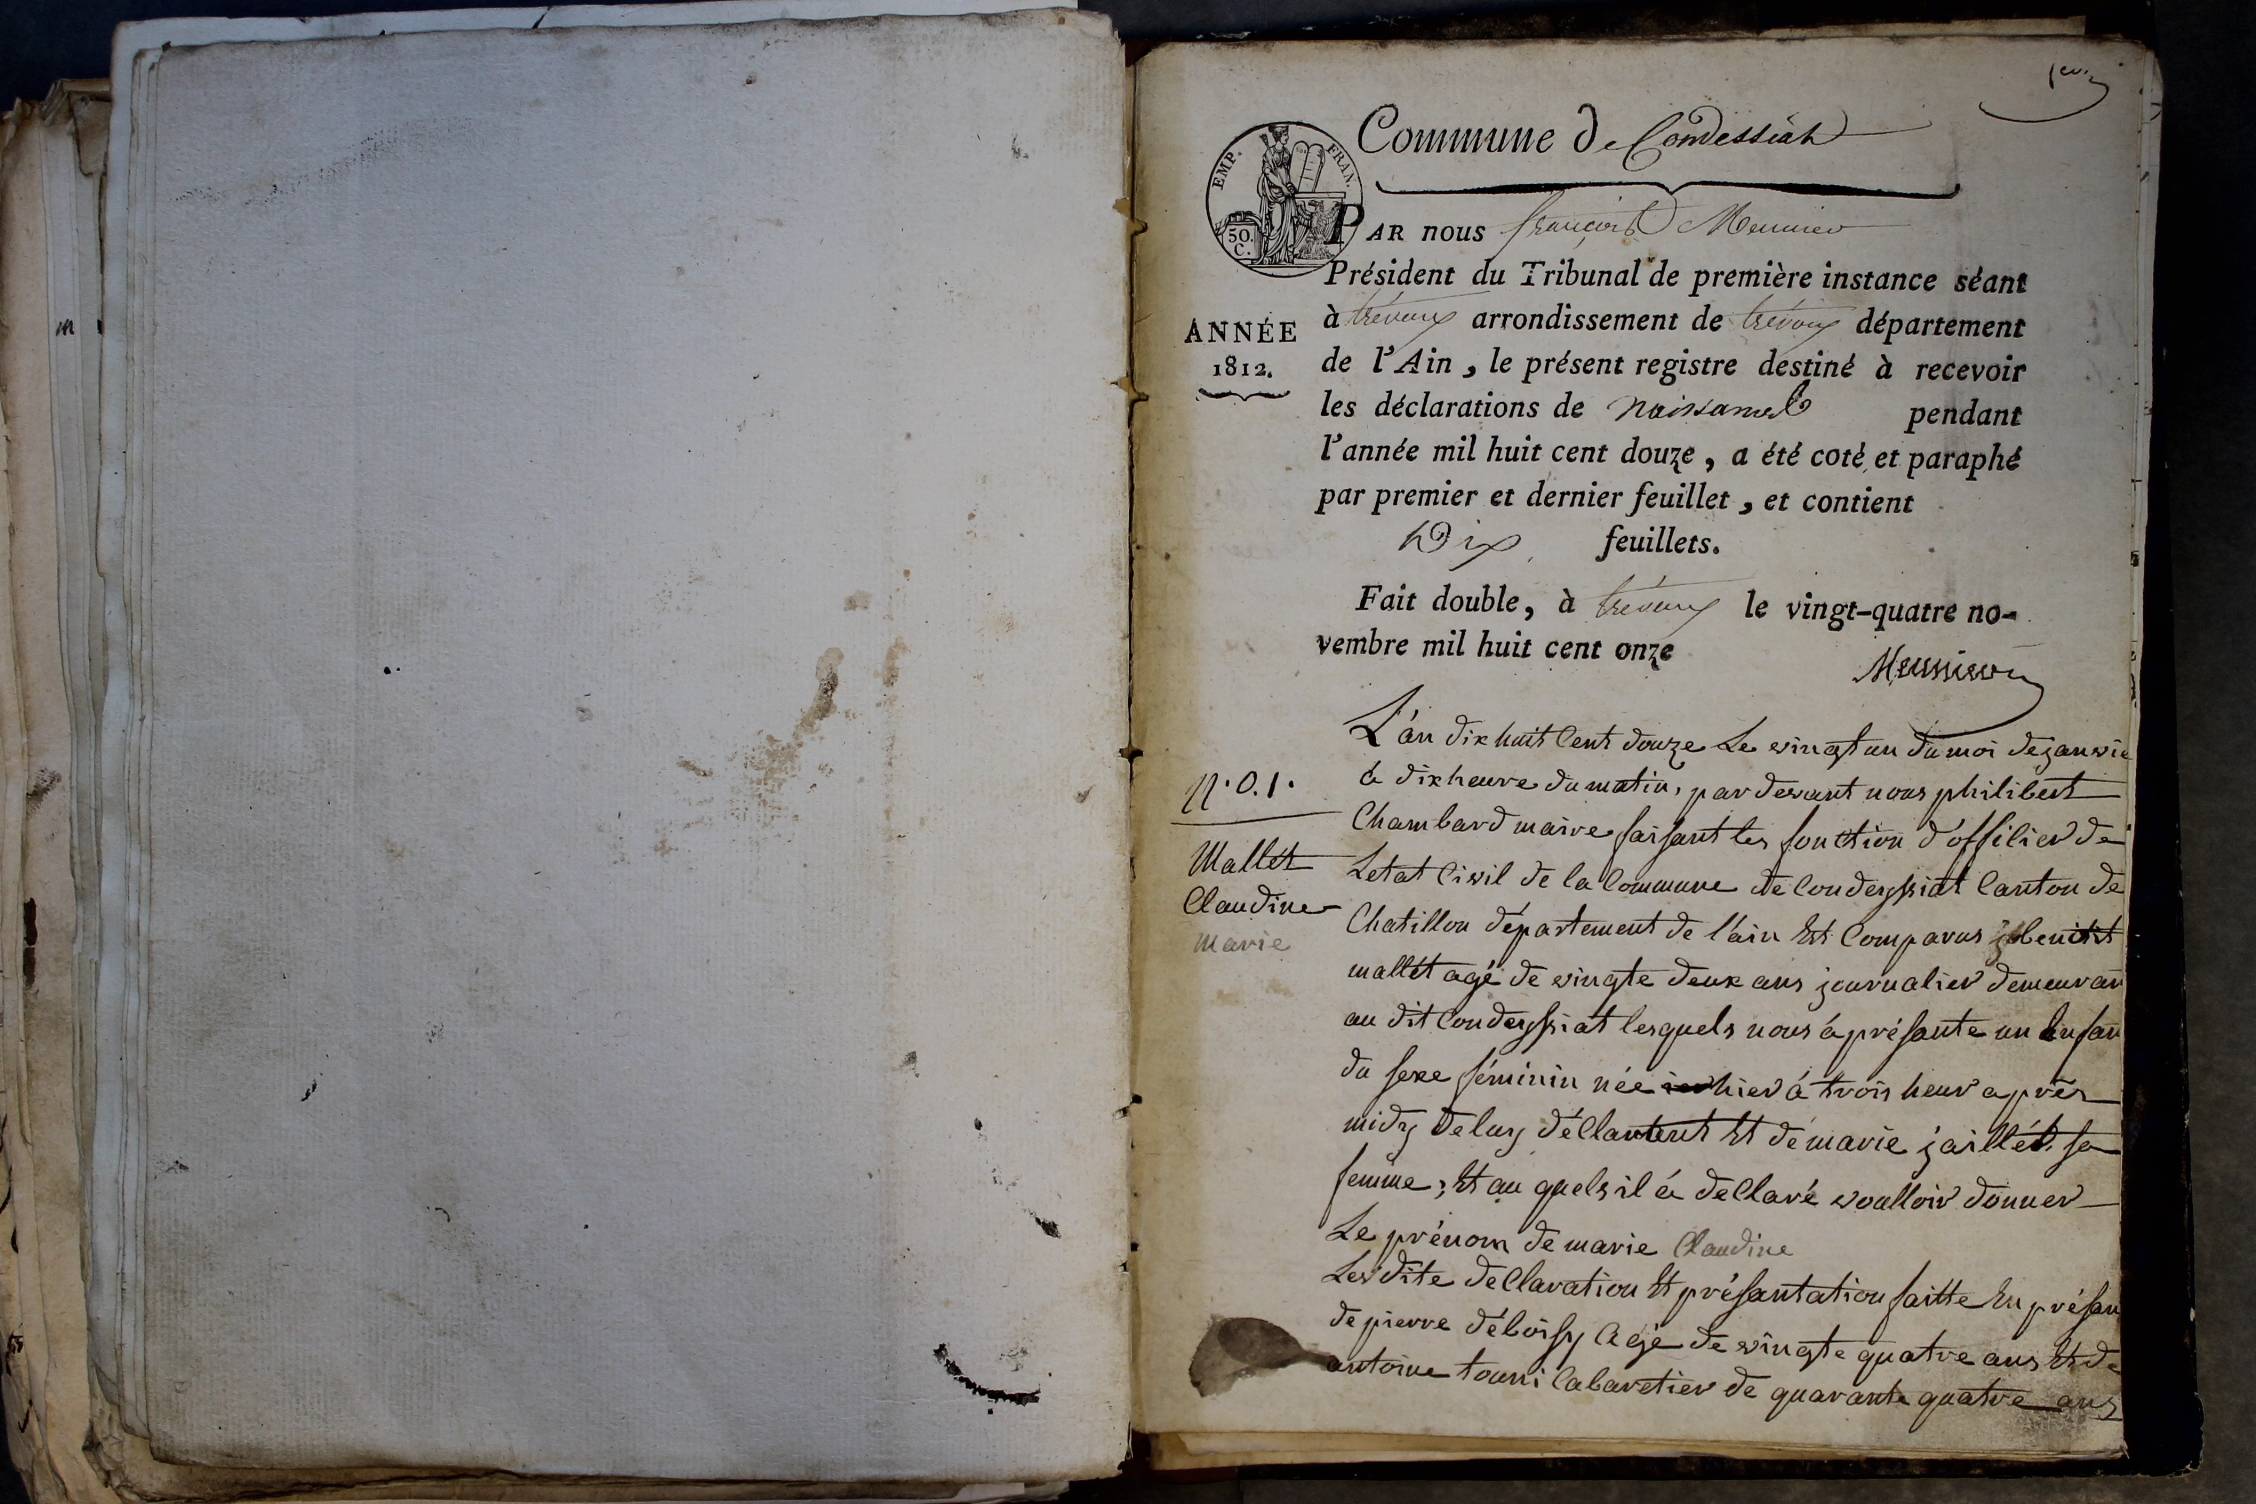 Commune de Condessiat
EMP. FRAN.
50.
C.
PAR nous françois Meunier
Président du Tribunal de première instance séant
à trévoux arrondissement de trévoux département
ANNÉE
1812.
de l'Ain, le présent registre destiné à recevoir
les déclarations de naissances pendant
l'année mil huit cent douze, a été coté et paraphé
par premier et dernier feuillet, et contient
Dix feuillets.
Fait double, à trévoux le vingt-quatre no-
vembre mil huit cent onze
Meunier
L'an dix huit Cent douze Le vingt un du moi de janvie
à dix heure du matin, par devant nous philibert
Chambard maire faisant les fonction d'officier de
Letat Civil de la Commune de Condeyssiat Canton de
Chatillon département de l'ain Est Comparus benoit
mallét agé de vingte deux ans journalier demeuran
au dit Condeyssiat lesquels nous à présante un Enfan
du sexe féminin née hier à trois heur après
midy de luy déClartent Et de marie jaillét sa
femme; Et au quels il à déClaré voulloir donner
Le prénom de marie Claudine
Les dite déClaration Et présantation faitte En présan
de pierre déboisy Agé de vingte quatre ans Et de
antoine tourni Cabaretier de quarante quatre ans
N.O.1.
Mallét
Claudine
Marie